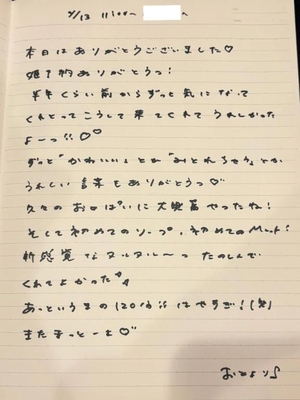 2/13 11:00〜
本日はありがとうございました♡
姫予約ありがとうっ!
半年くらい前からずっと気になって
くれとってこうして来てくれてうれしかった
よーっ!!♡♡
ずっと「かわいい」とか「みとれちゃう」とか
うれしい言葉をありがとうっ♡
久々のお口ぱいに大興奮やったね!
そして初めてのソープ、初めてのMat!
新感覚なヌルヌル〜ったのしんで
くれてよかった
あっというまの120分はやすぎ!(笑)
またまっとーよ♡